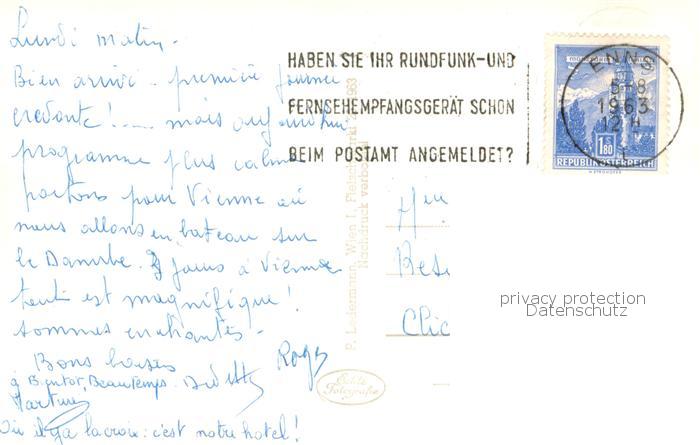 Lundi matin -
Bien arrivé - première journée
crevante! .... mais aujourd'hui
programme plus calme
partons pour Vienne où
nous allons en bateau sur
le Danube. 3 jours à Vienne
tout est magnifique!
sommes enchantés -
Bons baisers Roger
à Beau temps.
Où il y a la croix: c'est notre hotel!
HABEN SIE IHR RUNDFUNK-UND
FERNSEHEMPFANGSGERÄT SCHON
BEIM POSTAMT ANGEMELDET?
ENNS
1963
1.80
REPUBLIK ÖSTERREICH
P. Ledermann, Wien I., 1963
Nachdruck verboten
Echte
Fotografie
privacy protection
Datenschutz